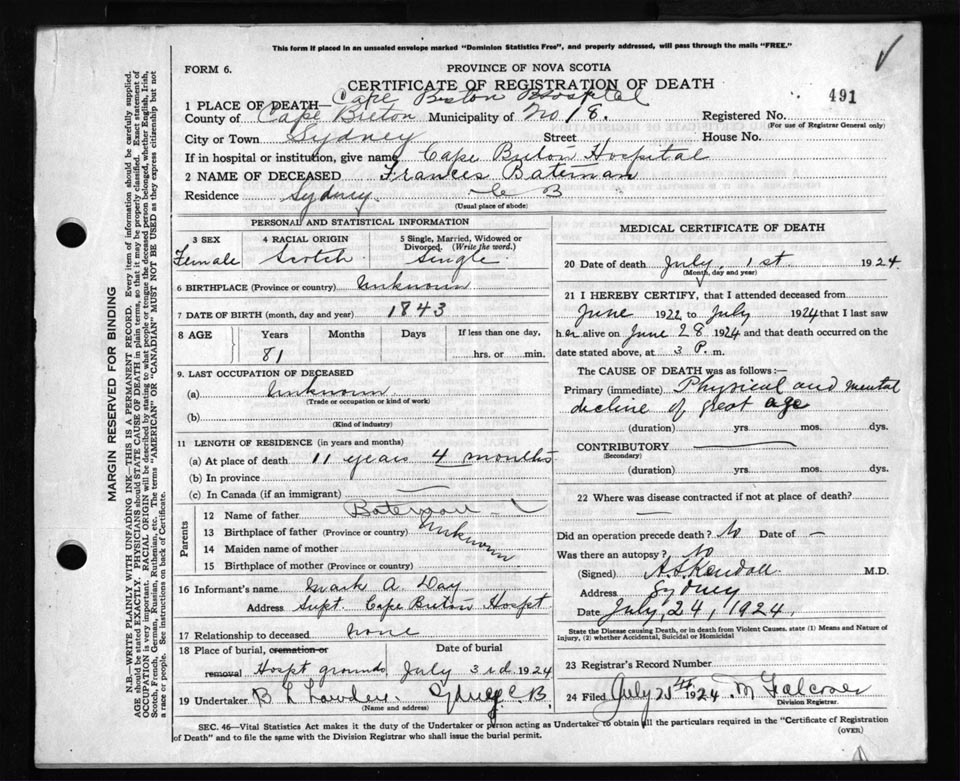 This form if placed in an unsealed envelope marked "Dominion Statistics Free", and properly addressed, will pass through the mails "FREE."
FORM 6.
PROVINCE OF NOVA SCOTIA
CERTIFICATE OF REGISTRATION OF DEATH
491
1 PLACE OF DEATH— Cape Breton Hospital
County of Cape Breton Municipality of No. 18. Registered No.
(For use of Registrar General only)
City or Town Sydney Street House No.
If in hospital or institution, give name Cape Breton Hospital
2 NAME OF DECEASED Frances Bateman
Residence Sydney C B
(Usual place of abode)
PERSONAL AND STATISTICAL INFORMATION
3 SEX 4 RACIAL ORIGIN 5 Single, Married, Widowed or Divorced. (Write the word.)
Female Scotch Single
6 BIRTHPLACE (Province or country) Unknown
7 DATE OF BIRTH (month, day and year) 1843
8 AGE Years Months Days If less than one day,
81 hrs. or min.
9. LAST OCCUPATION OF DECEASED
(a) Unknown
(Trade or occupation or kind of work)
(b)
(Kind of industry)
11 LENGTH OF RESIDENCE (in years and months)
(a) At place of death 11 years 4 months
(b) In province
(c) In Canada (if an immigrant) —
Parents
12 Name of father Bateman —
13 Birthplace of father (Province or country) Unknown
14 Maiden name of mother
15 Birthplace of mother (Province or Country)
16 Informant's name Mark A Day
Address Supt. Cape Breton Hospt
17 Relationship to deceased None
18 Place of burial, cremation or Date of burial
removal Hospt grounds July 3rd 1924
19 Undertaker B L Sydney C. B.
(Name and address)
MEDICAL CERTIFICATE OF DEATH
20 Date of death July 1st 1924
(Month, day and year)
21 I HEREBY CERTIFY, that I attended deceased from
June 1922 to July 1924 that I last saw
her alive on June 28 1924 and that death occurred on
date stated above, at 3 P. m.
The CAUSE OF DEATH was as follows:—
Primary (immediate) Physical and mental
decline of great age
(duration) yrs. mos. dys.
CONTRIBUTORY —
(Secondary)
(duration) yrs. mos. dys.
22 Where was disease contracted if not at place of death? —
Did an operation precede death? No Date of —
Was there an autopsy? No
(Signed) A.S. Kendall M.D.
Address Sydney
Date July, 24, 1924.
State the Disease causing Death, or in death from Violent Causes, state (1) Means and Nature of Injury, (2) whether Accidental, Suicidal or Homicidal
23 Registrar's Record Number
24 Filed July 25th 1924 M Falconer
Division Registrar.
SEC. 46—Vital Statistics Act makes it the duty of the Undertaker or person acting as Undertaker to obtain all the particulars required in the "Certificate of Registration
of Death" and to file the same with the Division Registrar who shall issue the burial permit.
(OVER)
MARGIN RESERVED FOR BINDING
N.B.—WRITE PLAINLY WITH UNFADING INK—THIS IS A PERMANENT RECORD. Every item of information should be carefully supplied.
AGE should be stated EXACTLY. PHYSICIANS should STATE CAUSE OF DEATH in plain terms, so that it may be properly classified. Exact statement of
OCCUPATION is very important. RACIAL ORIGIN will be described by stating to what people or tongue the deceased person belonged, whether English, Irish,
Scotch, French, German, Russian, Ruthenian, etc. The terms "AMERICAN" or "CANADIAN" MUST NOT BE USED as they express citizenship but not
a race or people. See instructions on back of Certificate.